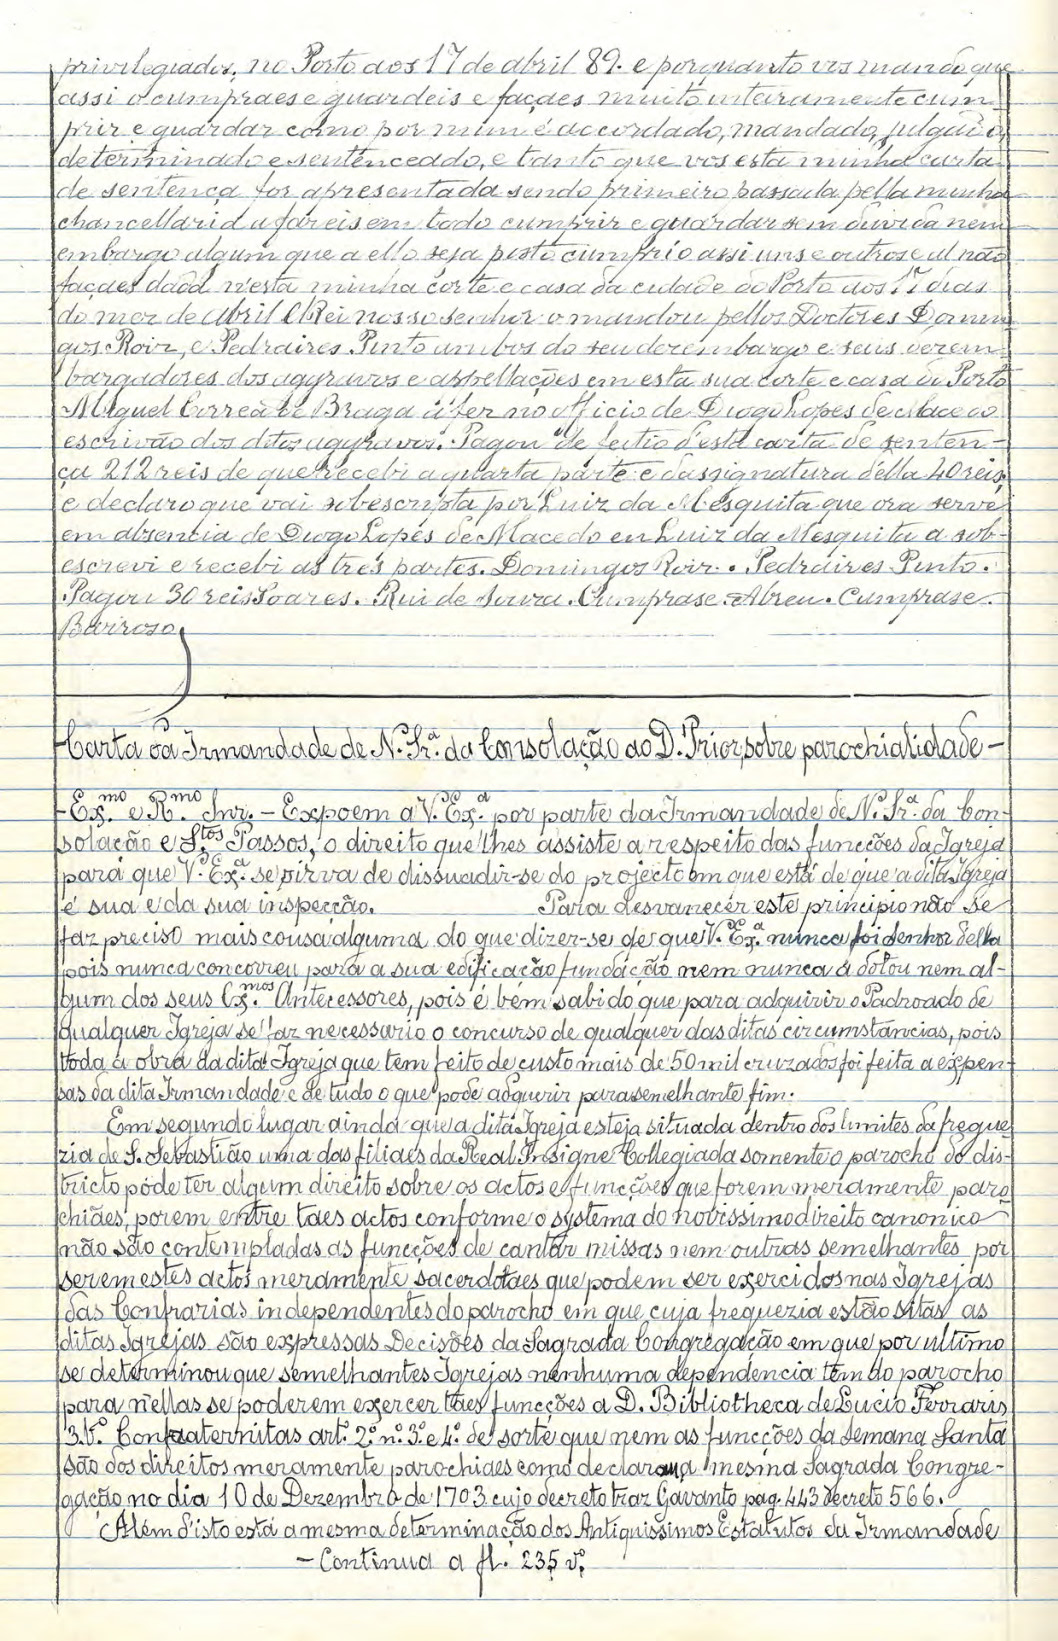 privilegiados, no Porto aos 17 de abril 89. e porquanto vos mando que
assi o cumpraes e guardeis e façaes muito intaramente cum-
prir e guardar como por mim é accordado, mandado, julgado,
determinado e sentenceado, e tanto que vos esta minha carta
de sentença for apresentada sendo primeiro passada pella minha
chancellaria a fareis em todo cumprir e guardar sem duvida nem
embargo algum que a ello seja posto cumprio assi uns e outros e al não
façaes dada n'esta minha corte e casa da cidade do Porto aos 17 dias
do mez de Abril El Rei nosso senhor o mandou pellos Doctores Domin-
gos Roiz, e Pedraires Pinto ambos do seu dezembargo e seus dezem-
bargadores dos aggravos e appellações em esta sua corte e casa do Porto
Miguel Correa de Braga a fez no officio de Diogo Lopes de Macedo
escrivão dos ditos aggravos. Pagou de feitio d'esta carta de senten-
ça 212 reis de que recebi a quarta parte e d'assignatura d'ella 40 reis,
e declaro que vai sobescripta por Luiz da Mesquita que ora serve
em absencia de Diogo Lopes de Macedo eu Luiz da Mesquita a sob-
escrevi e recebi as tres partes. Domingos Roiz. . Pedraires Pinto.
Pagou 30 reis Soares. Rui de Souza. Cumprase. Abreu. Cumprase.
Barroso
Carta da Irmandade de N.ª Sr.ª da Consolação ao D. Prior, sobre parochialidade -
- Ex.mo e R.mo Snr. - Expoem a V. Ex.ª por parte da Irmandade de N.ª Sr.ª da Con-
solação e S.tos Passos, o direito que lhes assiste a respeito das funcções da Igreja
para que V. Ex.ª se sirva de dissuadir-se do projecto em que está de que a dita Igreja
é sua e da sua inspecção. Para desvanecer este principio não se
faz preciso mais cousa alguma do que dizer-se de que V. Ex.ª nunca foi denhor della
pois nunca concorreu para a sua edificação fundação nem nunca a dotou nem al-
gum dos seus Ex.mos Antecessores, pois é bem sabido que para adquirir o Padroado de
qualquer Igreja se faz necessario o concurso de qualquer das ditas circumstancias, pois
toda a obra da dita Igreja que tem feito de custo mais de 50 mil cruzados foi feita a expen-
sas da dita Irmandade e de tudo o que pode adquerir para semelhante fim.
Em segundo lugar ainda que a dita Igreja esteja situada dentro dos limites da fregue
zia de S. Sebastião uma das filiaes da Real Insigne Collegiada somente o parocho do dis-
tricto póde ter algum direito sobre os actos e funcções que forem meramente paro
chiaes, porem entre taes actos conforme o systema do novissimo direito canonico
não são contempladas as funcções de cantar missas nem outras semelhantes por
serem estes actos meramente sacerdotaes que podem ser exercidos nas Igrejas
das Confrarias independentes do parocho em que cuja freguezia estão sitas as
ditas Igrejas são expressas Decisões da Sagrada Congregação em que por ultimo
se determinou que semelhantes Igrejas nenhuma dependencia tem do parocho
para n'ellas se poderem exercer taes funcções a D. Bibliotheca de Lucio Ferraris
3. V.º Confraternitas art.º 2.º n.º 3.º e 4.º de sorte que nem as funcções da Semana Santa
são dos direitos meramente parochiaes como declarou a mesma Sagrada Congre-
gação no dia 10 de Dezembro de 1703 cujo decreto traz Gavanto pag. 443 decreto 566.
Além d'isto está a mesma determinação dos Antiquissimos Estatutos da Irmandade
- Continua a fl. 235 v.º